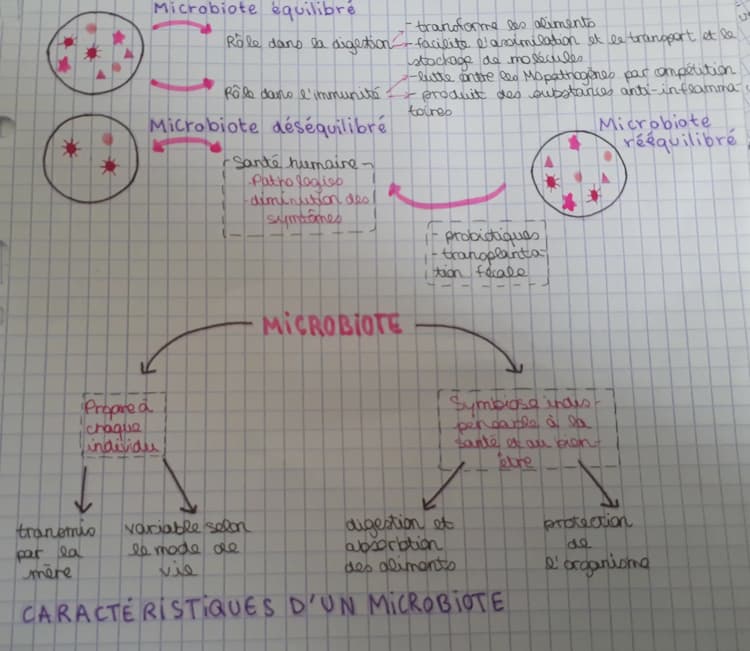 Microbiote équilibré
Rôle dans la digestion
- transforme les aliments
- facilite l'assimilation et le transport et le
stockage de molécules
Rôle dans l'immunité
- lutte entre les Mopathogènes par compétition
- produit des substances anti-inflamma-
toires
Microbiote déséquilibré
Santé humaine
- Pathologies
- diminution des
symtômes
Microbiote
rééquilibré
- probiotiques
- transplanta-
tion fécale
MICROBIOTE
Propre à
chaque
individu
Symbiose indis-
pensable à la
santé et au bien-
être
transmis
par la
mère
variable selon
le mode de
vie
digestion et
absorbtion
des aliments
protection
de
l'organisme
CARACTÉRISTIQUES D'UN MICROBIOTE